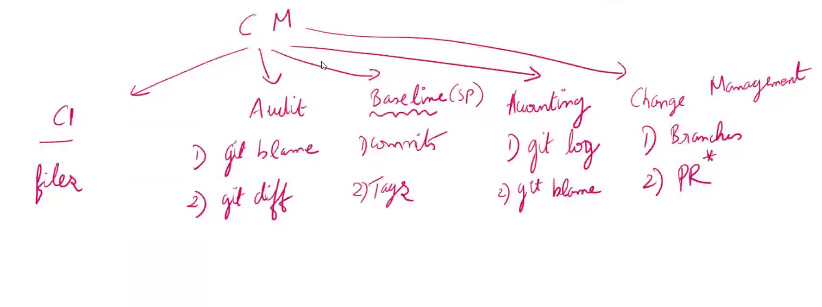 CM
CI
files
Audit
1) git blame
2) git diff
Baseline (SP)
1) commits
2) Tags
Accounting
1) git log
2) git blame
Change Management
1) Branches
2) PR*